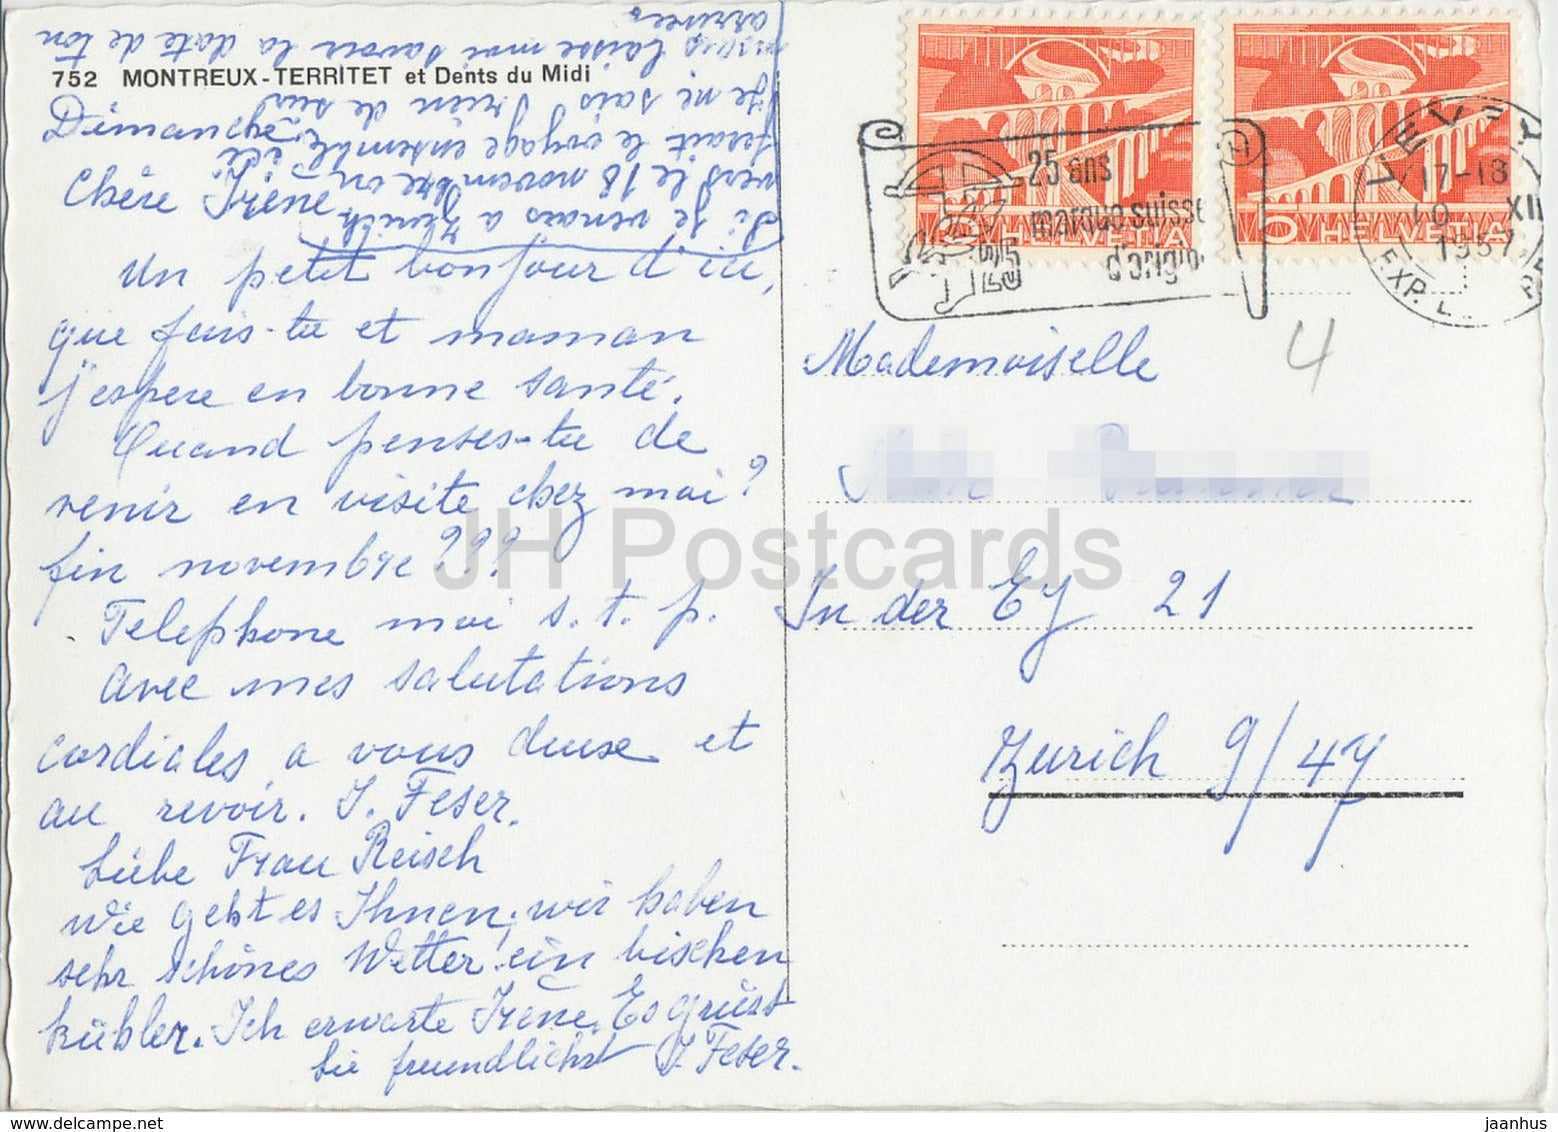 752 MONTREUX-TERRITET et Dents du Midi
Dimanche
Chère Irène
Un petit bonjour d'ici,
que fais-tu et maman
j'espère en bonne santé.
Quand penses-tu de
venir en visite chez moi?
fin novembre???
Telephone moi s.t.p.
Avec mes salutations
cordiales a vous deuse et
au revoir. I. Feser.
Liebe Frau Reisch
Wie geht es Ihnen, wir haben
sehr schönes Wetter ein bischen
kühler. Ich erwarte Irène. Es grüsst
Sie freundlichst I. Feser.
Si je venais a Zurich
vers le 18 novembre on
ferait le voyage ensemble ici
Je ne sais rien de sur
laisse moi savoir la date de ton
arrivée
25 ans
marque suisse
d'origi
HELVETIA
HELVETIA
VEVEY
17-18
10 XII
1957
EXP. L
Mademoiselle
4
In der Ey 21
Zurich 9/47
JH Postcards
www.delcampe.net
jaanhus